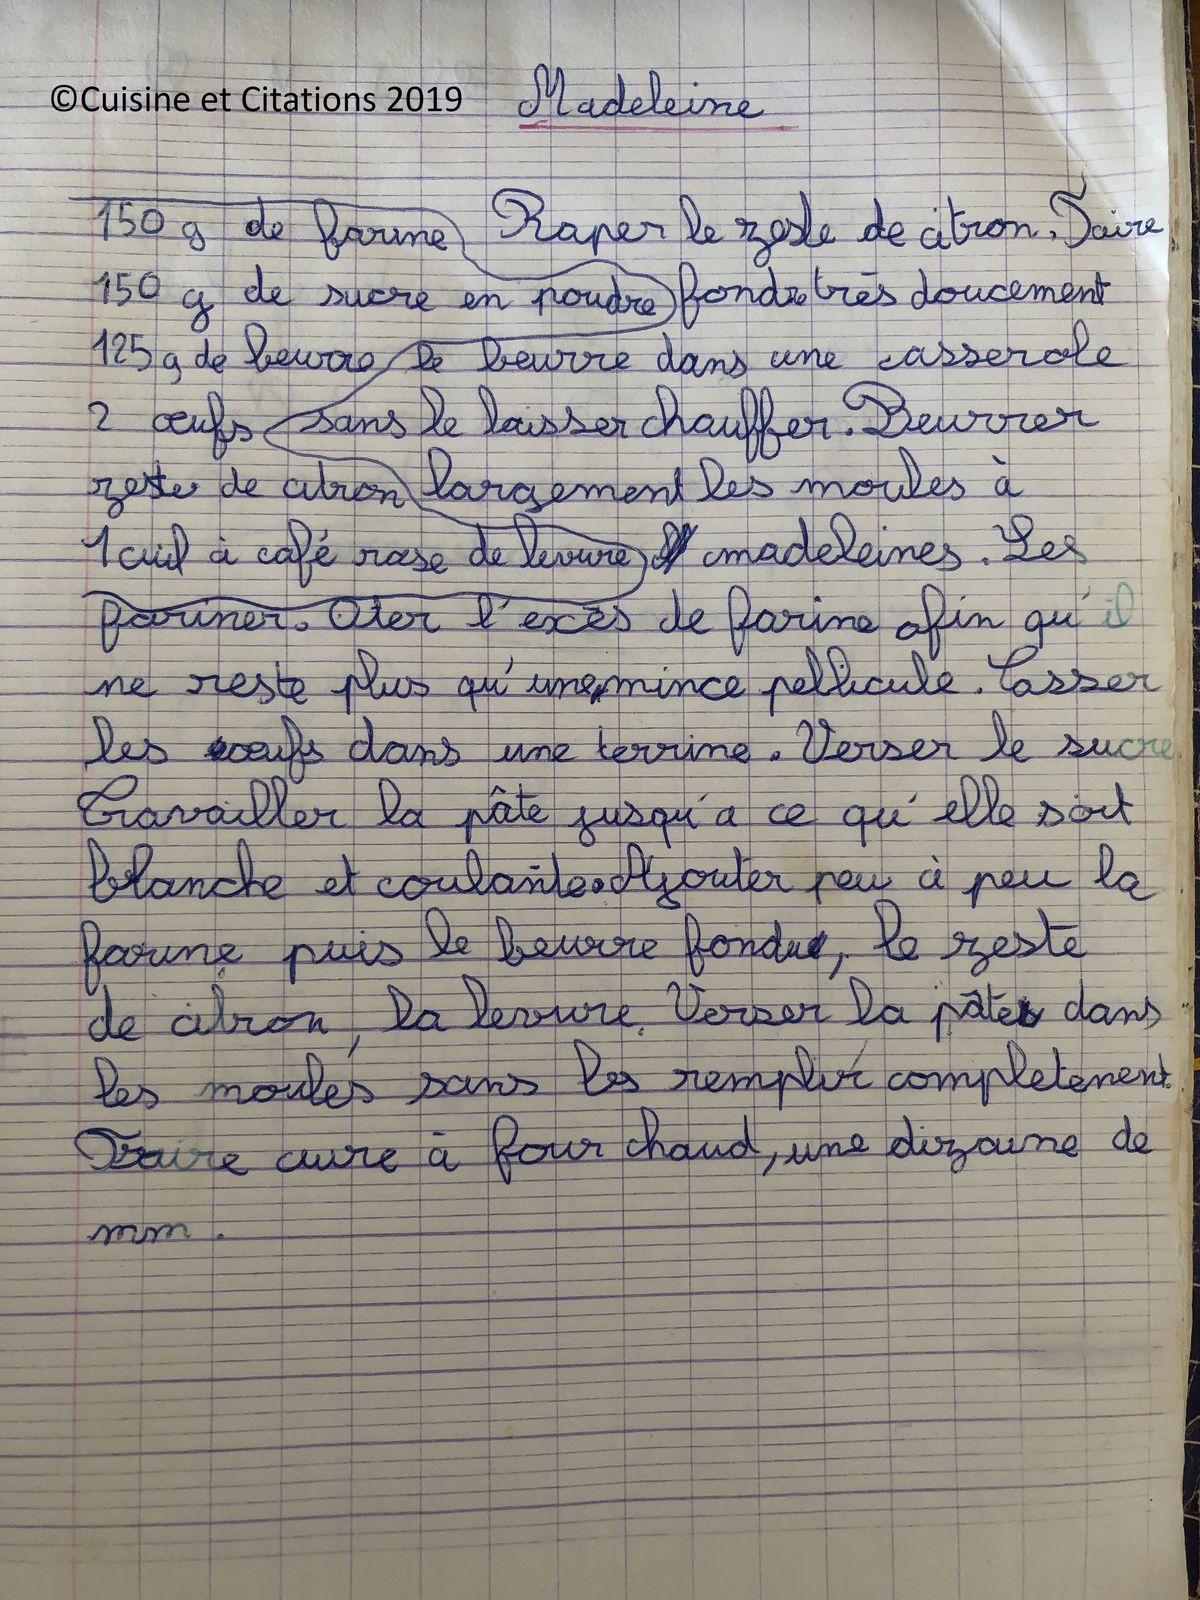 ©Cuisine et Citations 2019
Madeleine
150 g de farine
150 g de sucre en poudre
125 g de beurre
2 œufs
zeste de citron
1 cuil à café rase de levure
Raper le zeste de citron. Faire
fondre très doucement
le beurre dans une casserole
sans le laisser chauffer. Beurrer
largement les moules à
madeleines. Les
fariner. Oter l'excès de farine afin qu'il
ne reste plus qu'une mince pellicule. Casser
les œufs dans une terrine. Verser le sucre
Travailler la pâte jusqu'a ce qu'elle soit
blanche et coulante. Ajouter peu à peu la
farine puis le beurre fondu, le zeste
de citron, la levure. Verser la pâte dans
les moules sans les remplir completement.
Faire cuire à four chaud, une dizaine de
mm.